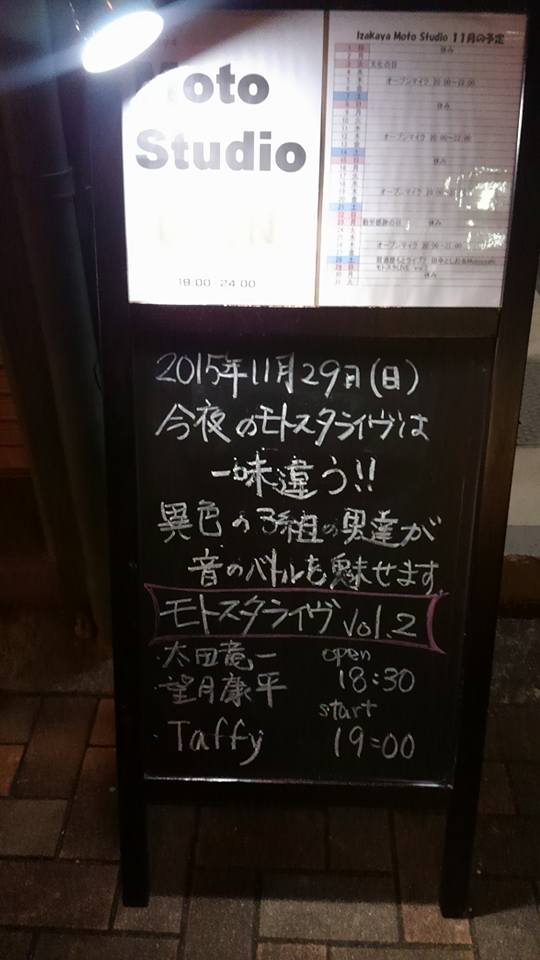 Moto
Studio
18:00-24:00
Izakaya Moto Studio 11月の予定
休み
文化の日
オープンマイク 20:00~22:00
休み
オープンマイク 20:00~22:00
オープンマイク
勤労感謝の日 休み
オープンマイク 20:00~22:00
休み
2015年11月29日(日)
今夜のモトスタライヴは
一味違う!!
異色の3組の男達が
音のバトルを魅せます
モトスタライヴ vol.2
・太田竜一 open
・望月康平 18:30
start
・Taffy 19:00